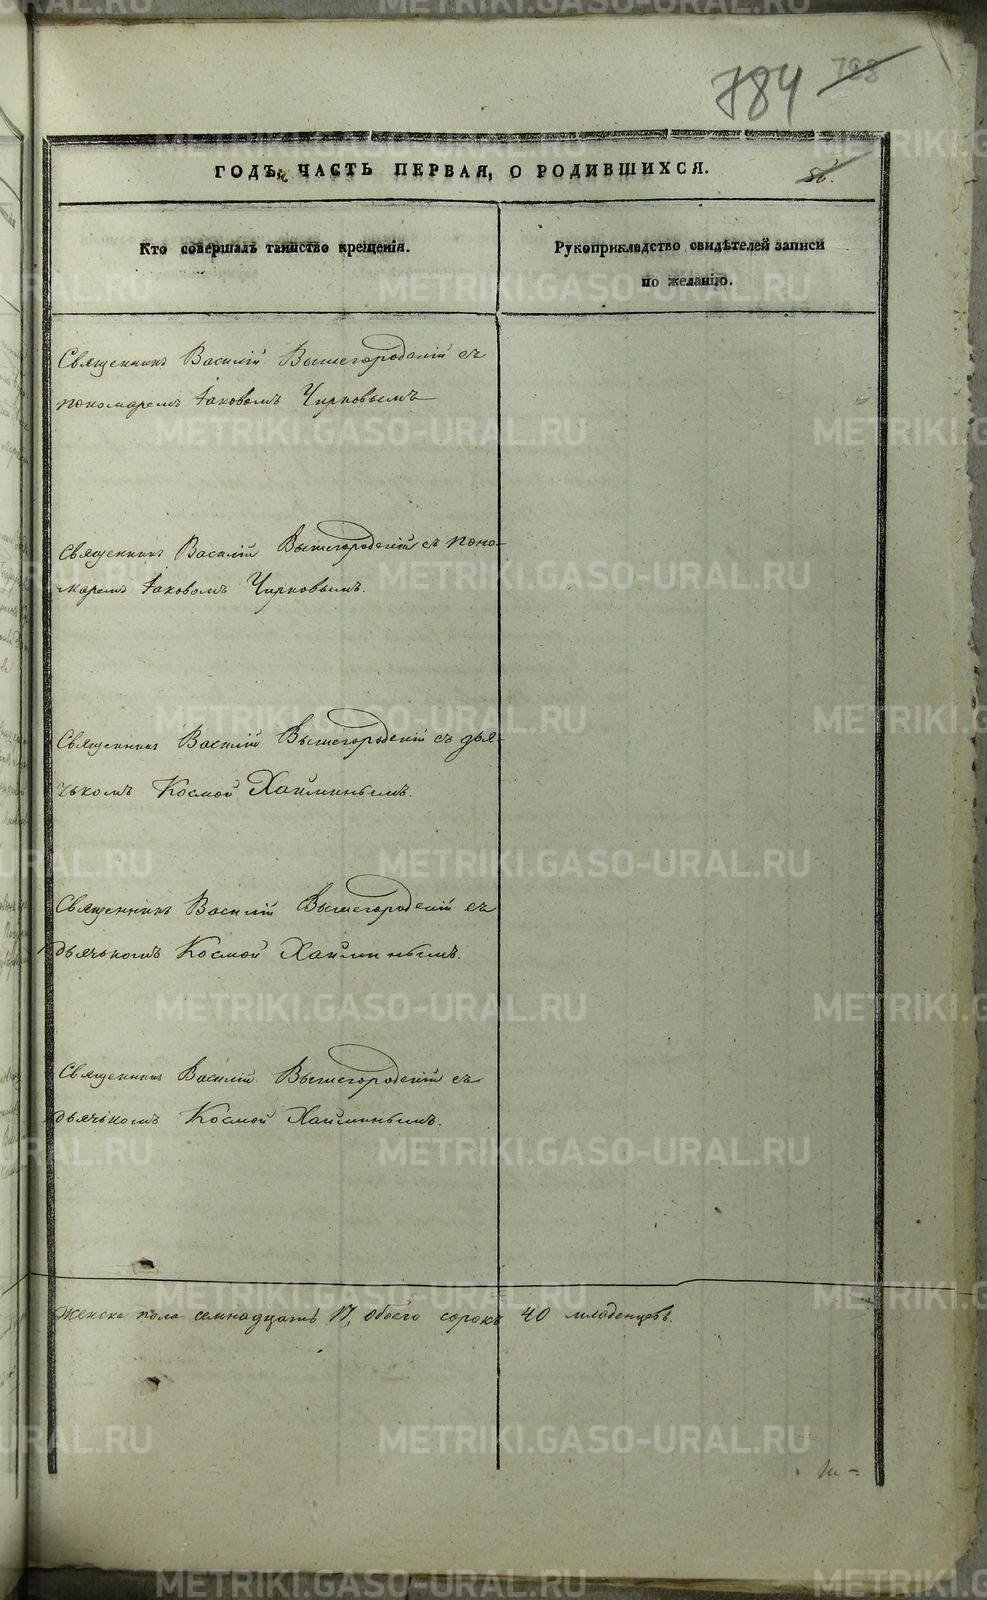 784 798
ГОДЪ, ЧАСТЬ ПЕРВАЯ, О РОДИВШИХСЯ.
Кто совершалъ таинство крещенія.
Рукоприкладство свидѣтелей записи
по желанію.
Священникъ Василій Вышегородскій съ
пономаремъ Іаковомъ Чирковымъ
Священникъ Василій Вышегородскій съ поно-
маремъ Іаковомъ Чирковымъ.
Священникъ Василій Вышегородскій съ дья-
чькомъ Космой Хайминымъ.
Священникъ Василій Вышегородскій съ
дьячькомъ Космой Хайминымъ.
Священникъ Василій Вышегородскій съ
дьячькомъ Космой Хайминымъ.
Женска пола семнадцать 17, обоего сорокъ 40 младенцевъ.
METRIKI.GASO-URAL.RU